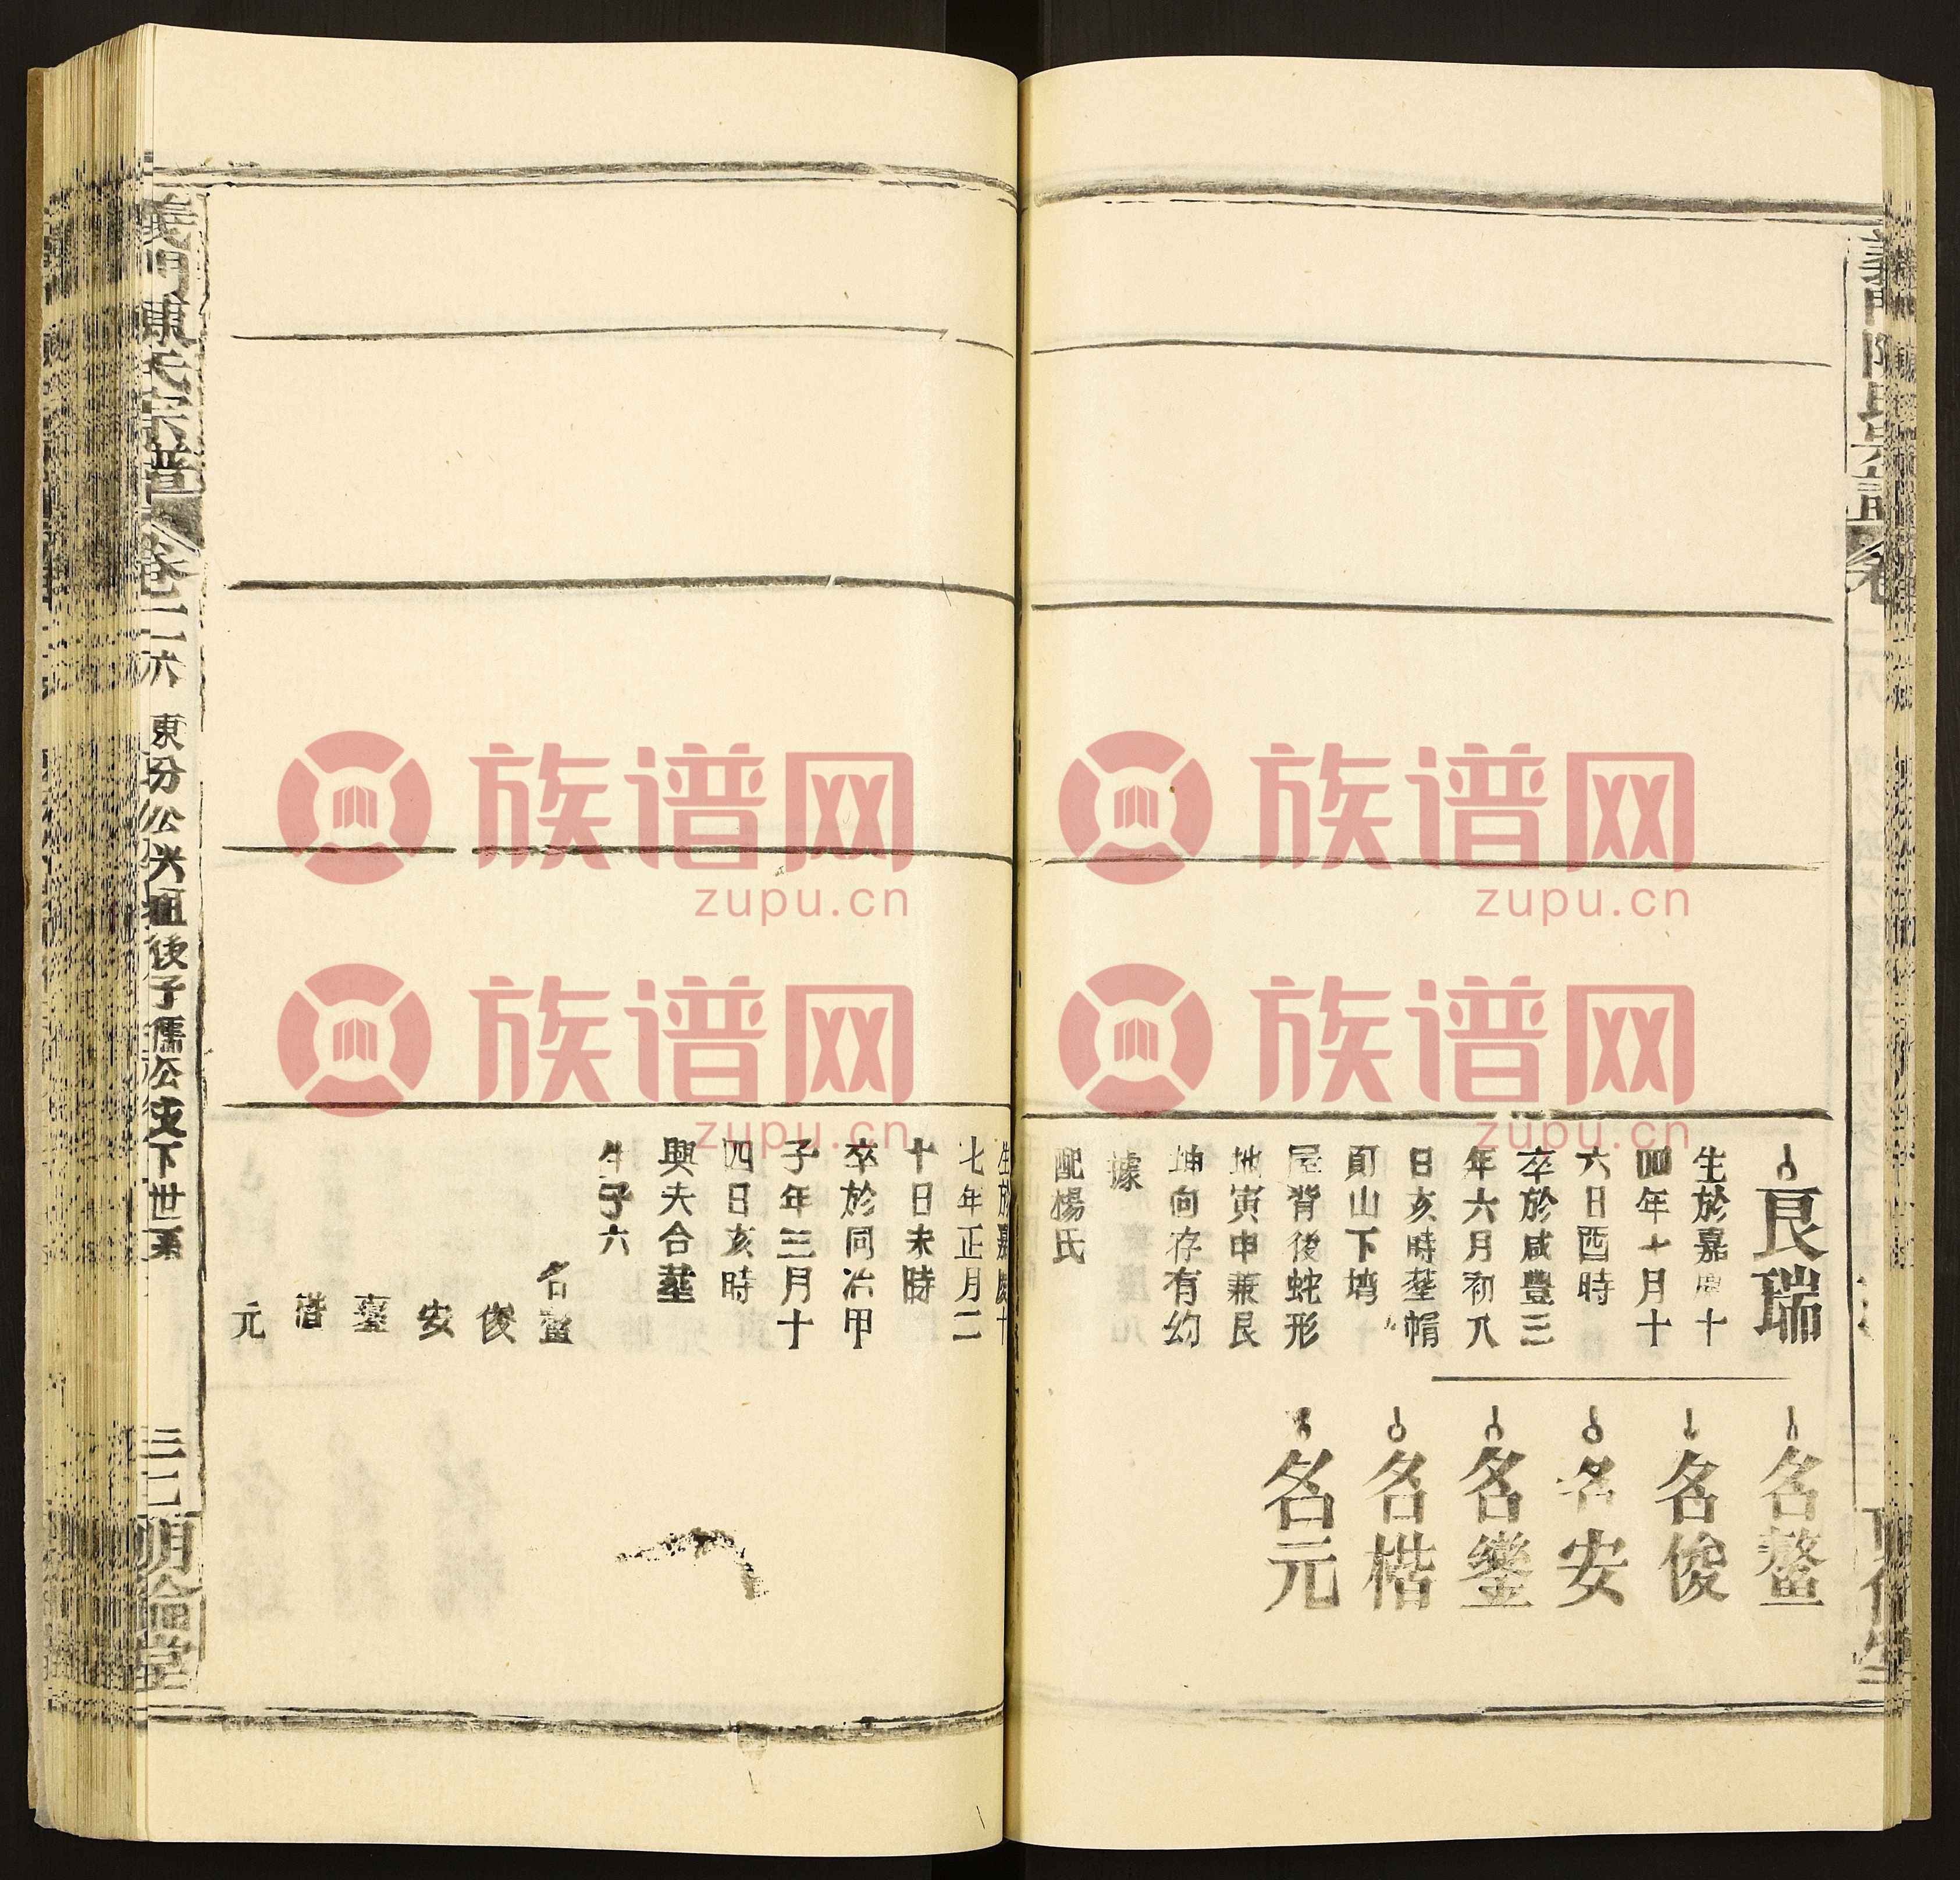 良瑞
生於嘉慶十
四年十月十
六日酉時
卒於咸豐三
年六月初八
日亥時塟帽
山下塆
屋背後蛇形
地寅申兼艮
坤向存有約
據
配楊氏
名鰲
名俊
名安
名鑾
名楷
名元
生於嘉慶十
七年正月二
十日未時
卒於同治甲
子年三月十
四日亥時
與夫合塟
生子六
名鰲
俊
安
元
義門陳氏宗譜
卷二六
東分公興祖後子儒公支下世系
明倫堂
族谱网
zupu.cn
族谱网
zupu.cn
族谱网
zupu.cn
族谱网
zupu.cn